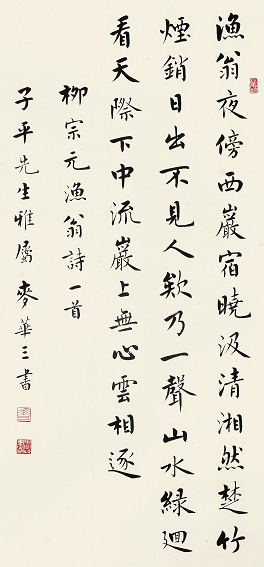 漁翁夜傍西巖宿曉汲清湘然楚竹
煙銷日出不見人欸乃一聲山水綠迴
看天際下中流巖上無心雲相逐
柳宗元漁翁詩一首
子平先生雅屬 麥華三書